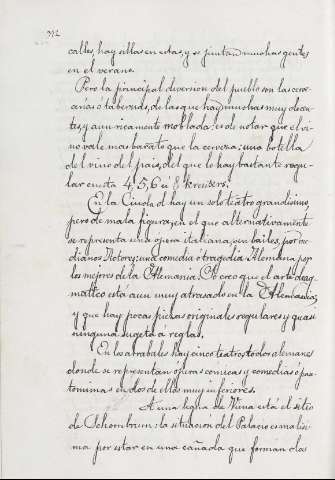 312
calles, hay sillas en ellas, y se juntan muchas gentes
en el verano.
Pero la principal diversion del pueblo son las cerve-
anas ó tabernas, de las que hay muchas muy decen-
tes, y aun ricamente moblada: es de notar que el vi-
no vale mas barato que la cerveza; una botella
del vino del pais, del que lo hay bastante regu-
lar cuesta 4, 5, 6 ú 8 kreutzers.
En la Ciudad hay un solo teatro grandisimo,
pero de mala figura, en el que alternativamente
se representa una opera italiana, sin bailes, por me-
dianos Actores; una comedia ó tragedia Alemana por
los mejores de la Alemania. Yo creo que el arte dra-
matico está aun muy atrasado en la Alemania,
y que hay pocas piezas originales regulares y quasi
ninguna sugeta á reglas.
En los arrabales hay cinco teatros, todos alemanes
donde se representan óperas comicas y comedias ó pan-
tomimas en dos de ellos muy inferiores.
A una legua de Viena está el sitio
de Schombrun: la situacion del Palacio es malisi-
ma por estar en una cañada que forman dos